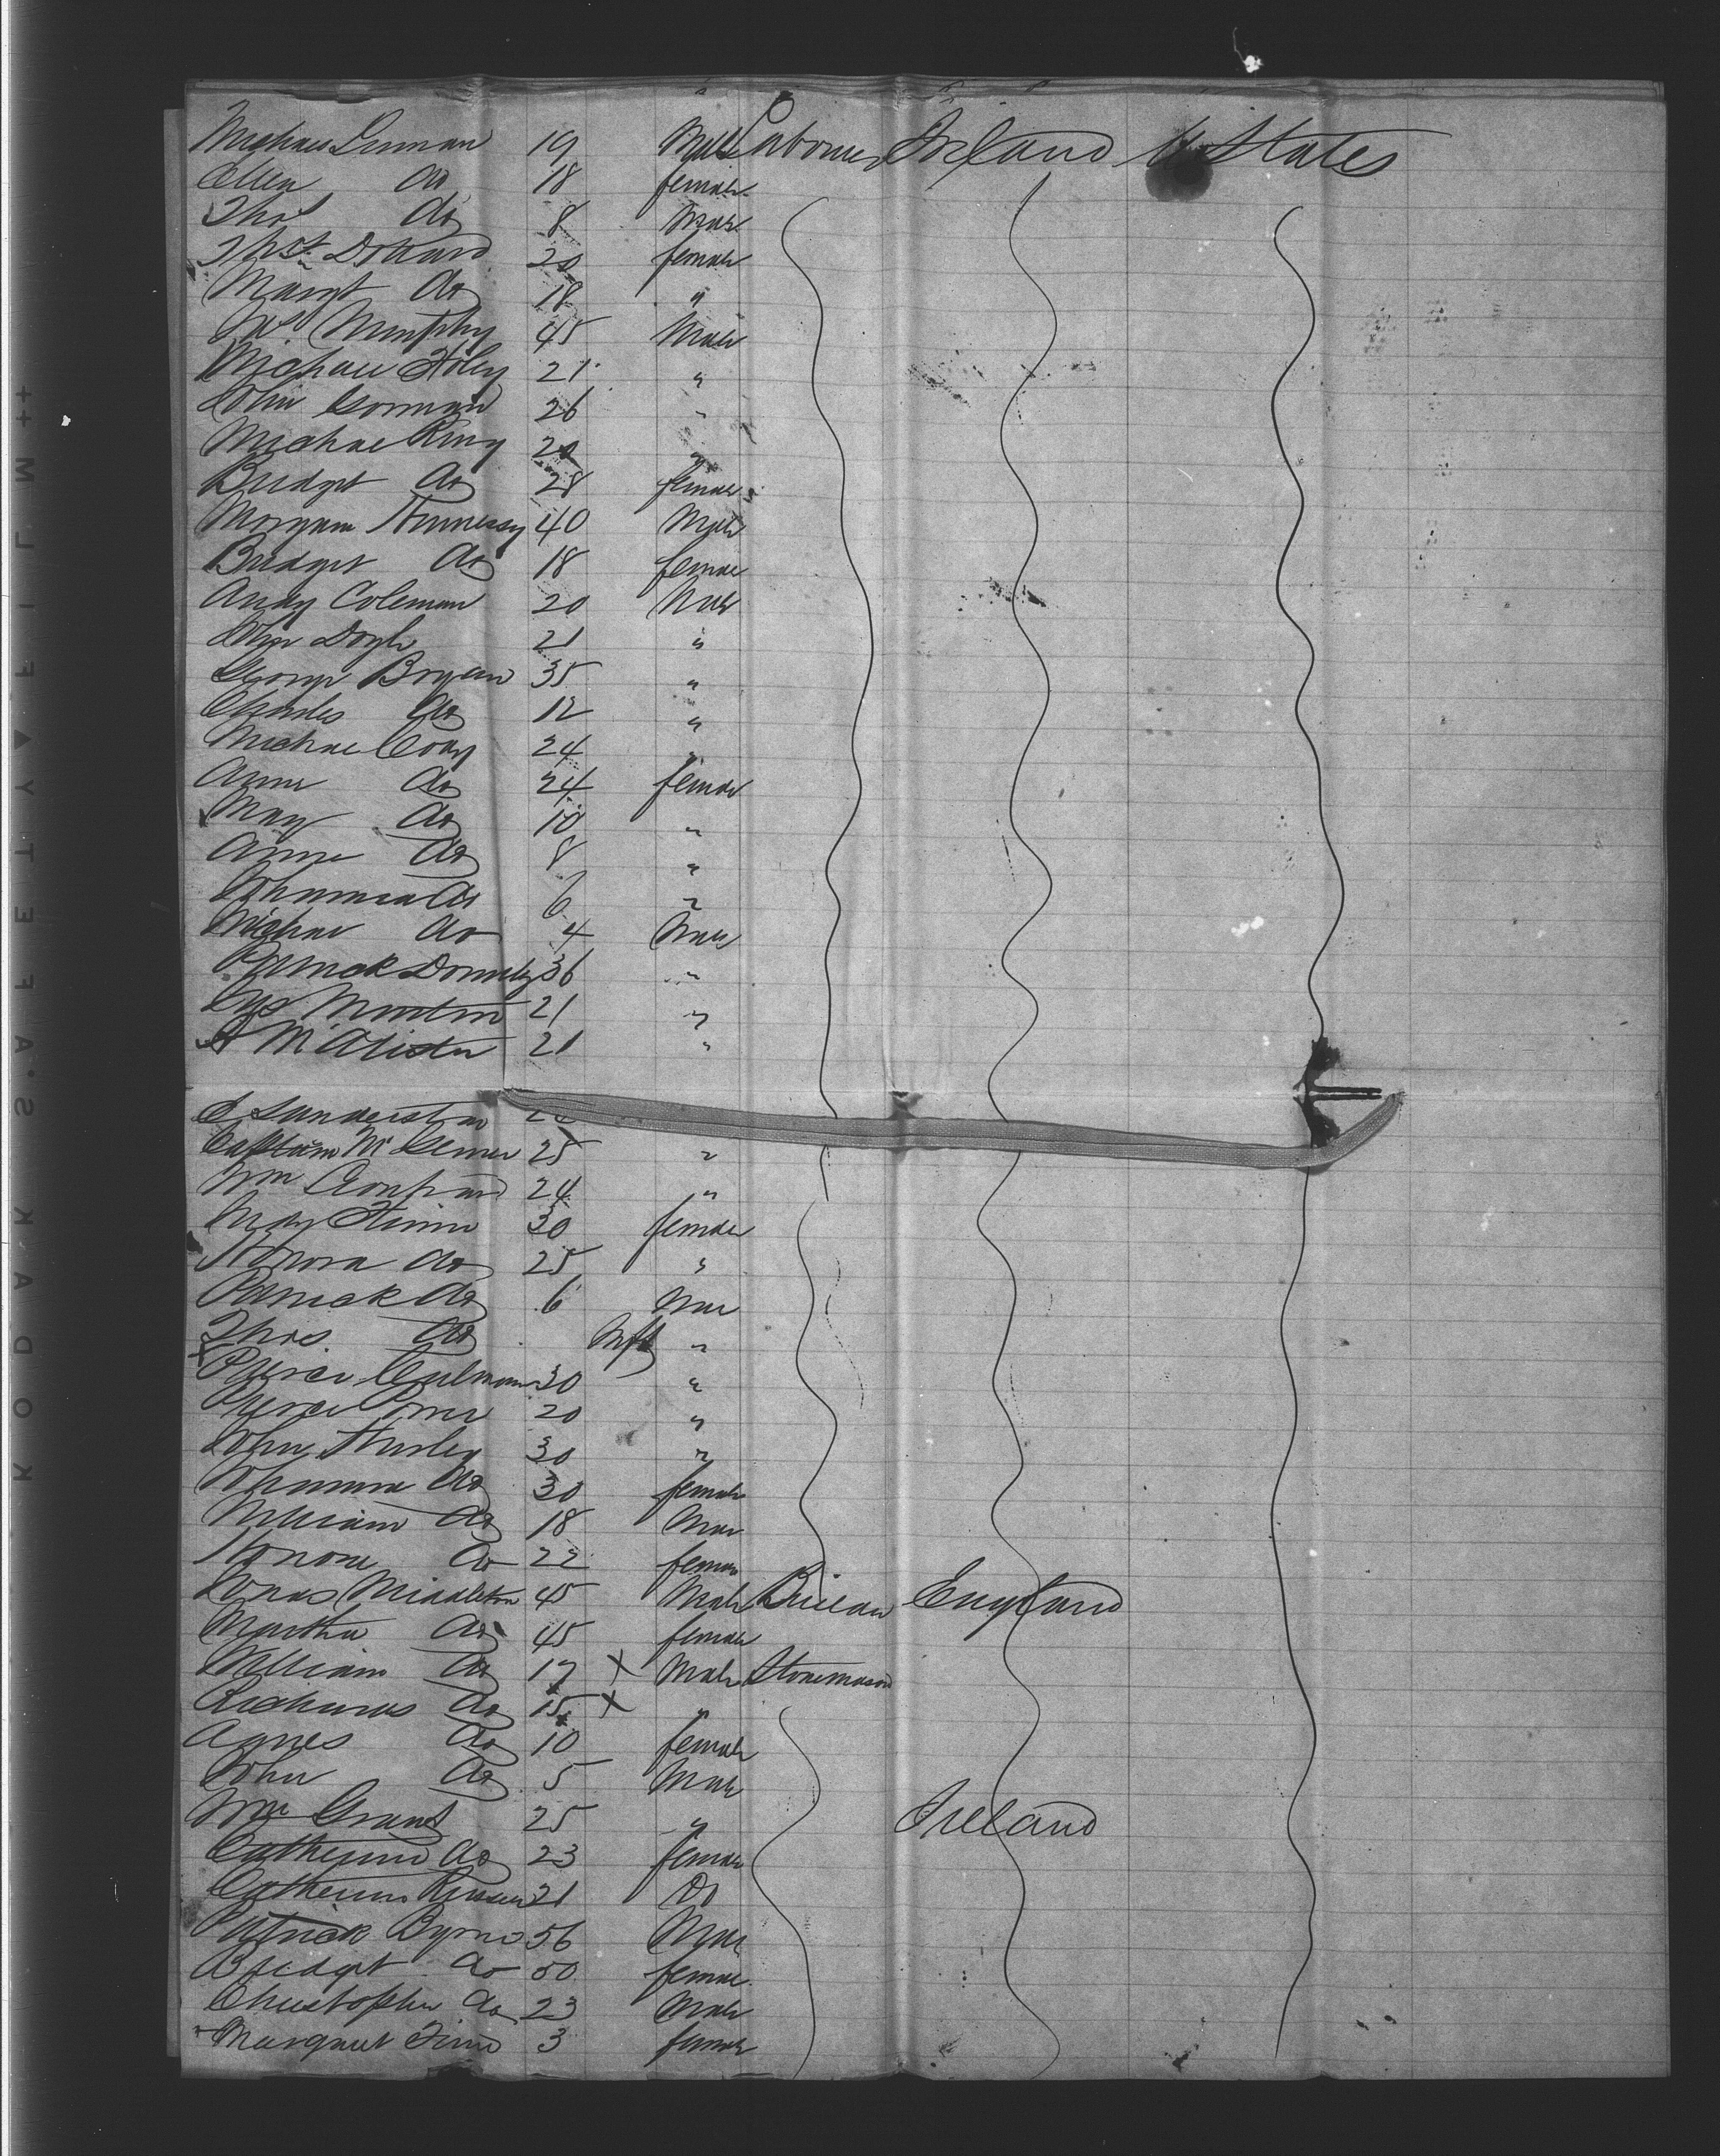 Michael 19 Male Labourer Ireland U States
Ellen do 18 female
Thos do 8 Male
20 female
Margt do 18 "
Murphy 45 Male
Michael Foley 21 "
John Gorman 26 "
Michael King 20 "
Bridget do 28 female
Morgan Hennessy 40 Male
Bridget do 18 female
Andy Coleman 20 Male
John Doyle 21 "
George Bryan 35 "
Charles do 12 "
Michael Cody 24 "
Anne do 24 female
Mary do 10 "
Anne do 8 "
Johanna do 6 "
Michael do 4 Male
Patrick Donnelly 36 "
21 "
McAlister 21 "
Captain Mc 25 "
Wm 24 "
30 female
Honora do 25 "
Patrick do 6 Male
Thos do Inft "
Pierce 30 "
Pierce Power 20 "
John Hurley 30 "
Johanna do 30 female
William do 18 Male
Honora do 22 female
Jonas Middleton 45 Male England
Martha do 45 female
William do 17 X Male Stonemason
Richard do 15 X "
Agnes do 10 female
John do 5 Male
Wm Grant 25 " Ireland
Catherine do 23 female
Catherine 21 Do
Patrick Byrne 56 Male
Bridget do 50 female
Christopher do 23 Male
Margaret 3 female
KODAK SAFETY FILM